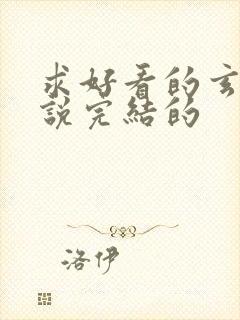 求好看的玄
說完結的
洛伊